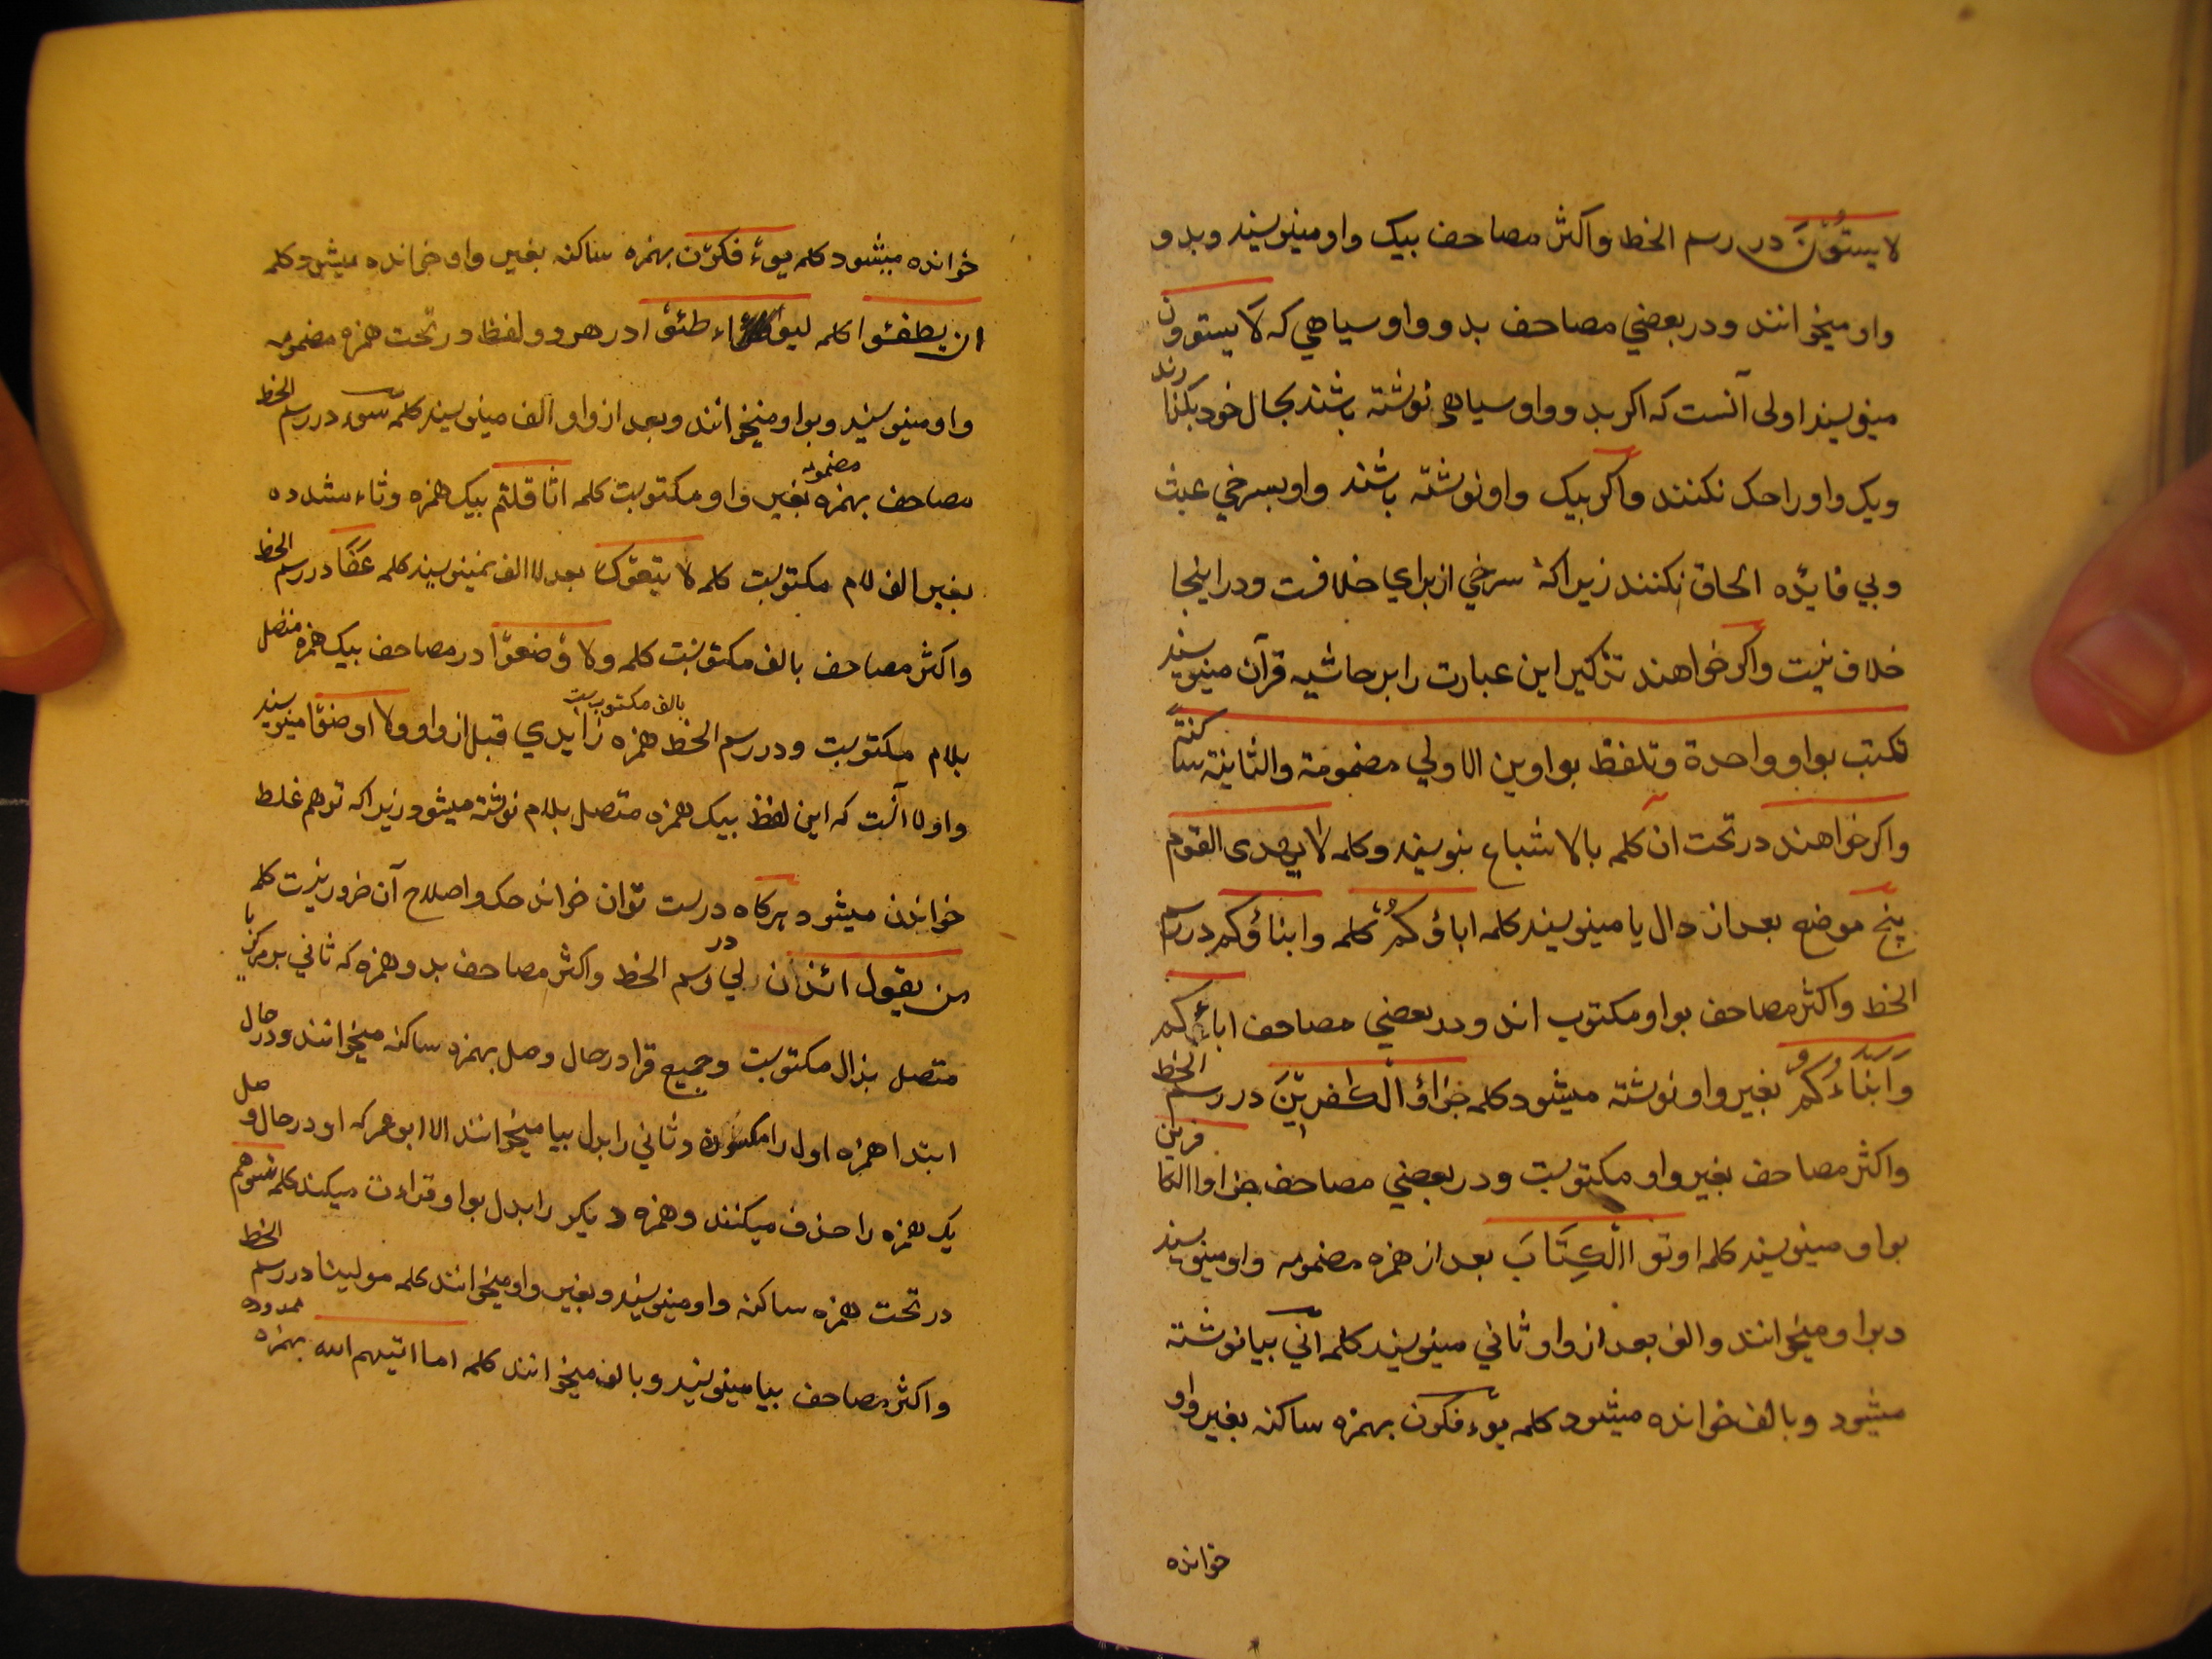 لا یستوٗنَ در رسم الخط و اکثر مصاحف بیک واو مینویسند و بدو
واو میخوانند و در بعضي مصاحف بدو واو سیاهي که لا یستوون
مینویسند اولی آنست که اکر بدو واو سیاهي نوشته باشند بحال خود بکذارند
ویک واو را حک نکنند و اکر بیک واو نوشته باشند واو بسرخي عبث
وبي فایٔده الحاق نکنند زیرا که سرخي از براي خلافست و در اینجا
خلاف نیست و اکر خواهند تذکیر این عبارت را بر حاشیه قرآن مینویسند
تکتب بواو واحدة وتلفظ بواوین الاولي مضمومة والثانیة ساکنةً
واکر خواهند در تحت ان کلمه بالاشباع بنویسند و کلمه لا یهدی القوم
پنج موضع بعد از دال یا مینویسند کلمه اباؤکمُ کلمه وابناؤکم در رسم
الخط و اکثر مصاحف بواو مکتوب اند و در بعضي مصاحف اباءکم
وَابنَاءُکم بغیر واو نوشته میشود کلمه جزاؤ الکٰفرینَ در رسم الخط
و اکثر مصاحف بغیر واو مکتوبست و در بعضي مصاحف جزاوا الکافرین
بواو مینویسند کلمه اوتوا الکِتَابَ بعد از همزه مضمومه واو مینویسند
وبواو میخوانند والف بعد از واو ثاني مینویسند کلمه انّي بیا نوشته
میشود و بالف خوانده میشود کلمه یوٴفکون بهمزه ساکنه بغیر واو
خوانده
خوانده میشود کلمه یوٴفکون بهمزه ساکنه بغیر واو خوانده میشود کلمه
ان یطفئوا کلمه لیواطئوا در هر دو لفظ در تحت همزه مضمومه
واو مینویسند وبواو میخوانند وبعد از واو الف مینویسند کلمه سوء در رسم الخط
مصاحف بهمزه مضمومه بغیر واو مکتوبست کلمه اثاقلتم بیک همزه وثاء مشدده
بغیر الف لام مکتوبست کلمه لا یتعوک بعد لا الف نمینویسند کلمه عَفَا در رسم الخط
و اکثر مصاحف بالف مکتوبست کلمه ولا وٴضعوا در مصاحف بیک همزه متصل
بلام مکتوبست و در رسم الخط همزه زایدي قبل از واو بالف مکتوبست ولا اوضعوا مینویسند
واولا آنست که این لفظ بیک همزه متصل بلام نوشته میشود زیرا که توهم غلط
خواندن میشود هرکاه درست توان خواند حک و اصلاح آن ضرور نیست کلمه
من یقول ائذن لي در رسم الخط و اکثر مصاحف بدو همزه که ثاني بر مرکز یا
متصل بذال مکتوبست و جمیع قرا در حال وصل بهمزه ساکنه میخوانند و در حال
ابتدا همزه اول را مکسوره وثاني را بدل بیا میخوانند الا ابو عمر که او در حال وصل
یک همزه را حذف میکنند و همزه دیکر را بدل بواو قراءت میکنند کلمه تسوهم
در تحت همزه ساکنه واو مینویسند و بغیر واو میخوانند کلمه مولینا در رسم الخط
و اکثر مصاحف بیا مینویسند و بالف میخوانند کلمه اما اتیهم الله بهمزه ممدوده